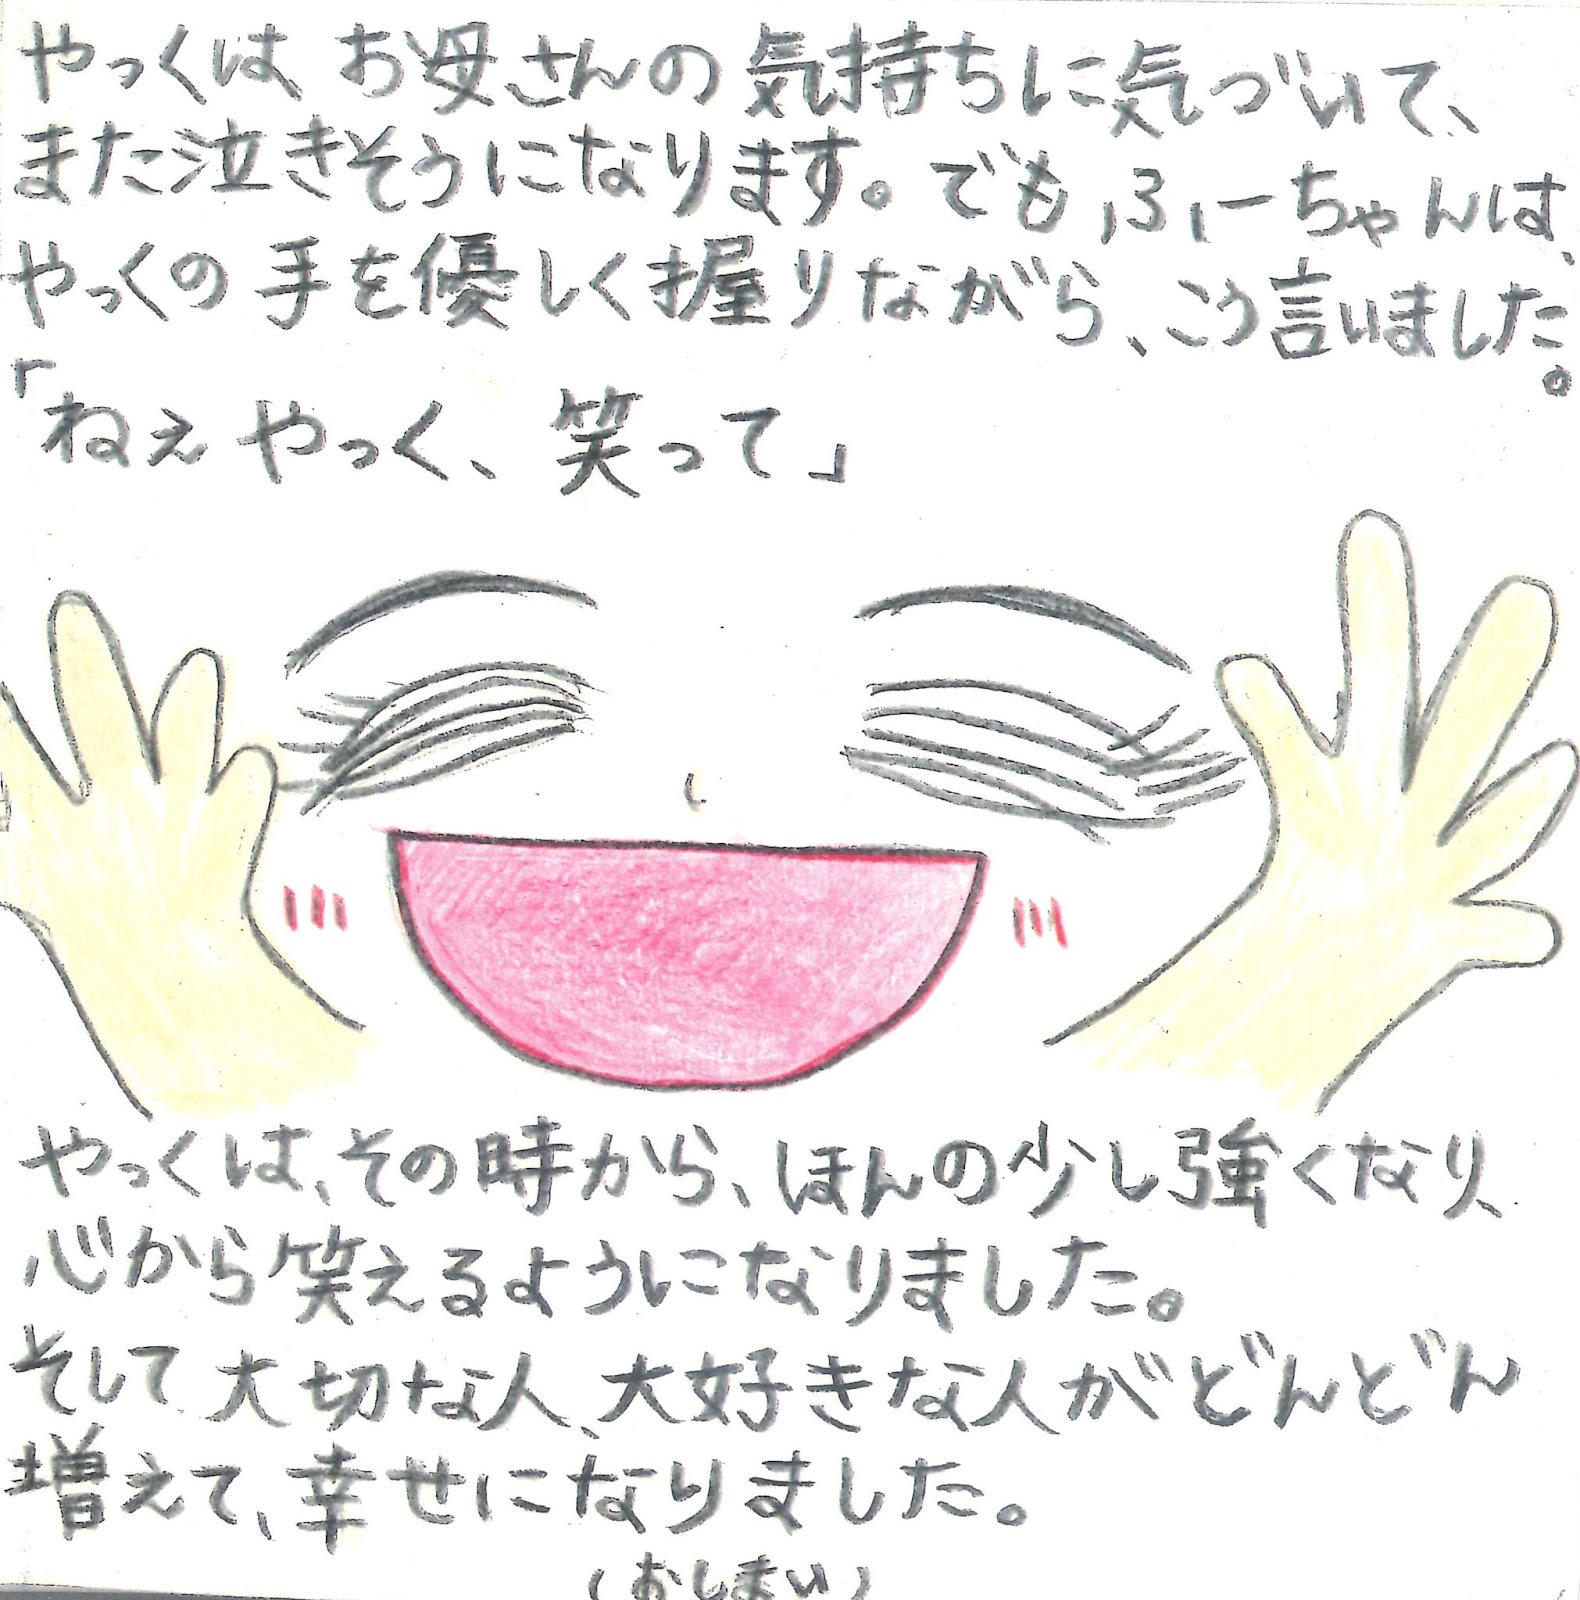 やっくは、お母さんの気持ちに気づいて、
また泣きそうになります。でも、ふーちゃんは、
やっくの手を優しく握りながら、こう言いました。
「ねえやっく、笑って」
やっくは、その時から、ほんの少し強くなり、
心から笑えるようになりました。
そして大切な人、大好きな人がどんどん
増えて、幸せになりました。
(おしまい)